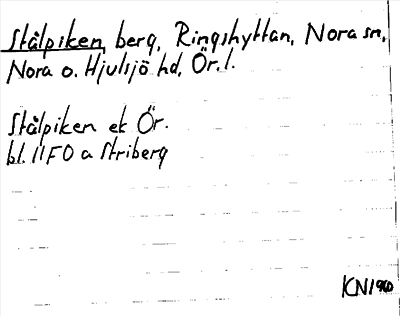 Stålpiken, berg, Ringshyttan, Nora sn,
Nora o. Hjulsjö hd, Ör. l.
Stålpiken ek Ör.
bl. 11F0 a Striberg
KN1960